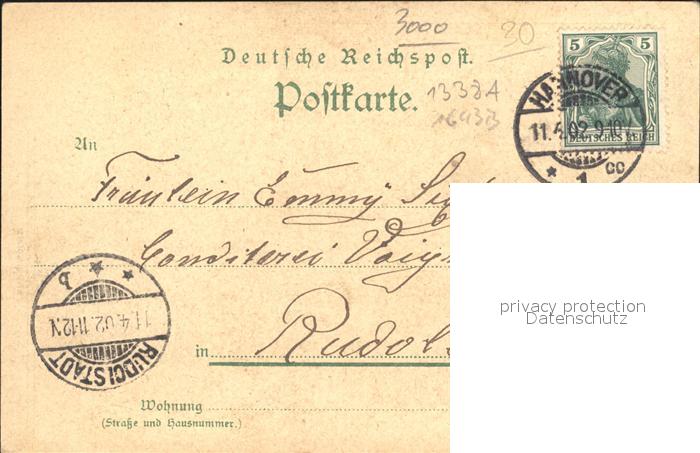 3000
20
Deutsche Reichspost.
Postkarte.
1338A
1643B
5 5
DEUTSCHES REICH
HANNOVER
11.4.02.9-10V.
* 1 cc
An
Fräulein Emmy
Conditorei
in Rudol
Wohnung
(Straße und Hausnummer.)
RUDOLSTADT
11.4.02.11-12N
* * b
privacy protection
Datenschutz